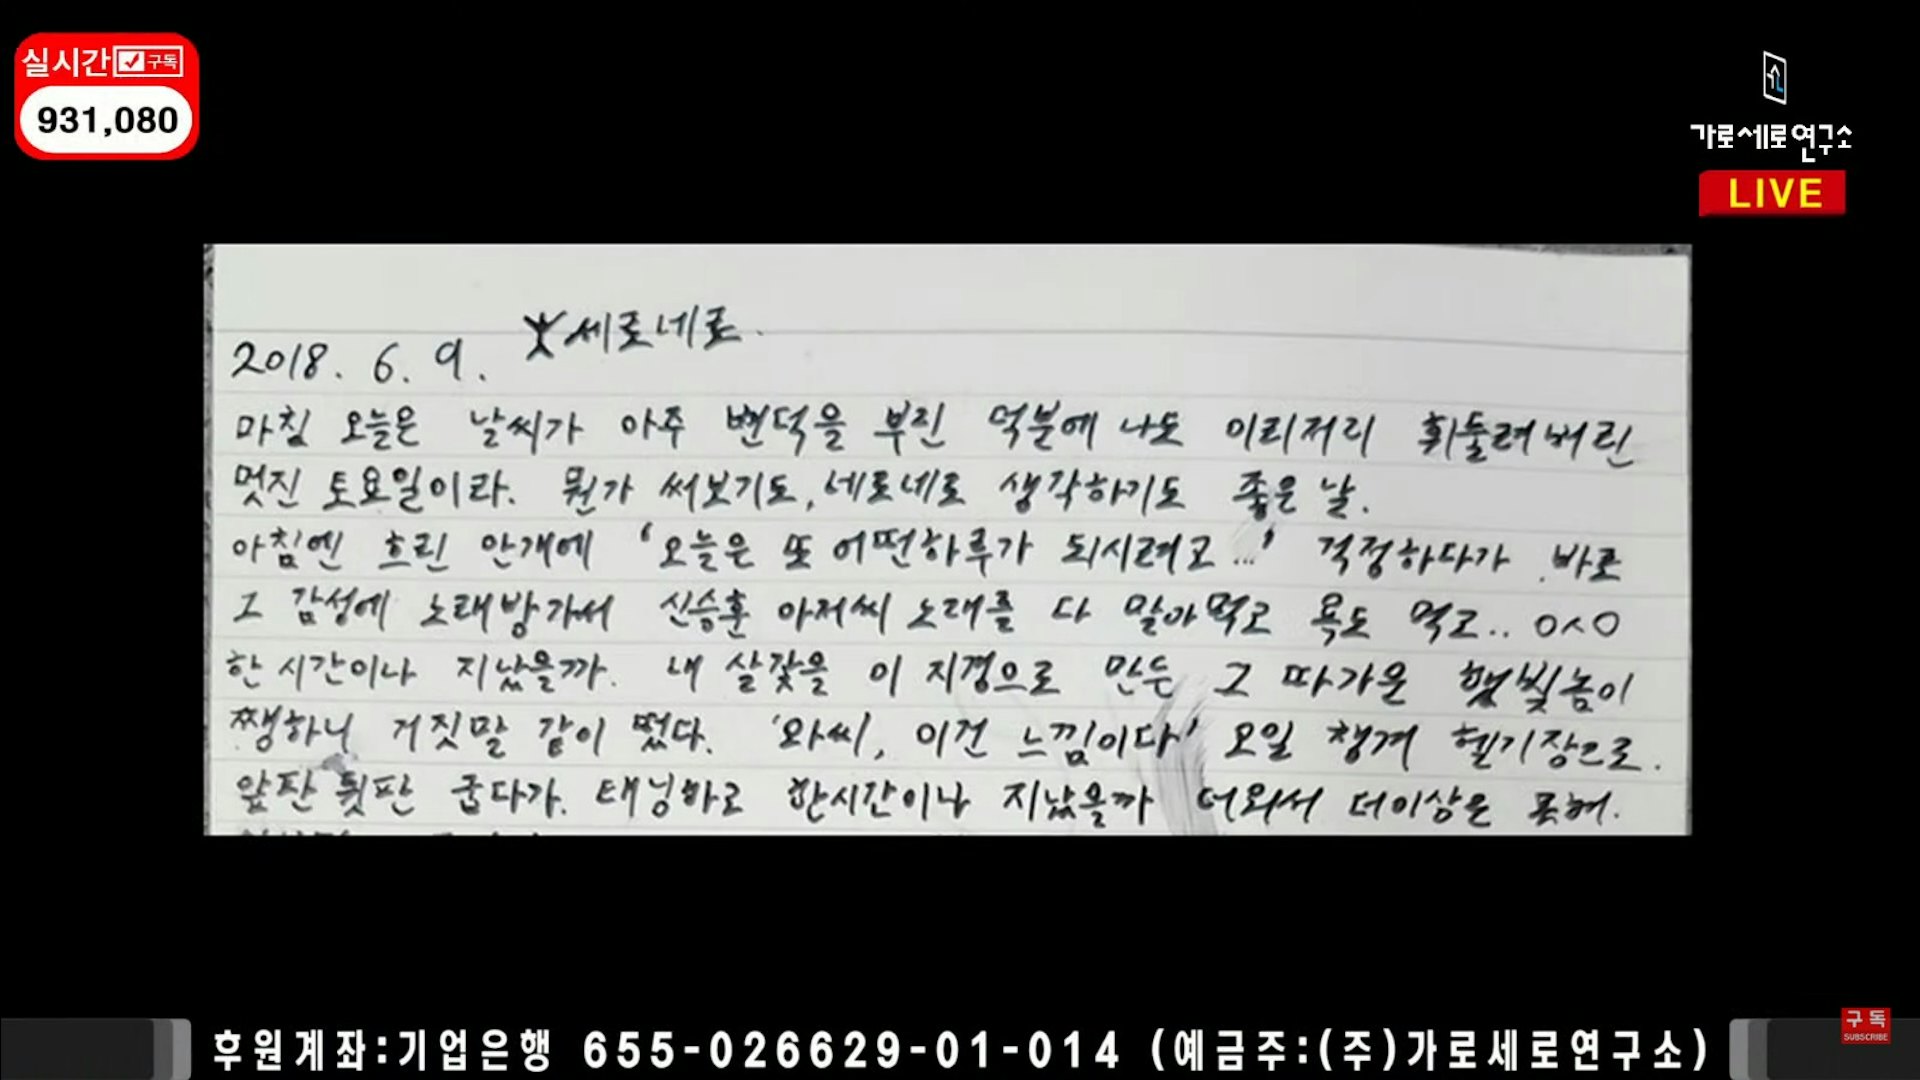 실시간 구독
931,080
가로세로연구소
LIVE
세로네로.
2018. 6. 9.
마침 오늘은 날씨가 아주 변덕을 부린 덕분에 나도 이리저리 휘둘려버린
멋진 토요일이라. 뭔가 써보기도, 네로네로 생각하기도 좋은 날.
아침엔 흐린 안개에 '오늘은 또 어떤하루가 되시려고...' 걱정하다가 바로
그 감성에 노래방가서 신승훈 아저씨 노래를 다 말아먹고 욕도 먹고.. ㅇㅅㅇ
한시간이나 지났을까. 내 살갗을 이 지경으로 만든 그 따가운 햇빛놈이
쨍하니 거짓말 같이 떴다. '와씨, 이건 느낌이다' 오일 챙겨 헬기장으로.
앞판 뒷판 굽다가. 태닝하고 한시간이나 지났을까 더워서 더이상은 못해.
후원계좌:기업은행 655-026629-01-014 (예금주:(주)가로세로연구소)
구독
SUBSCRIBE